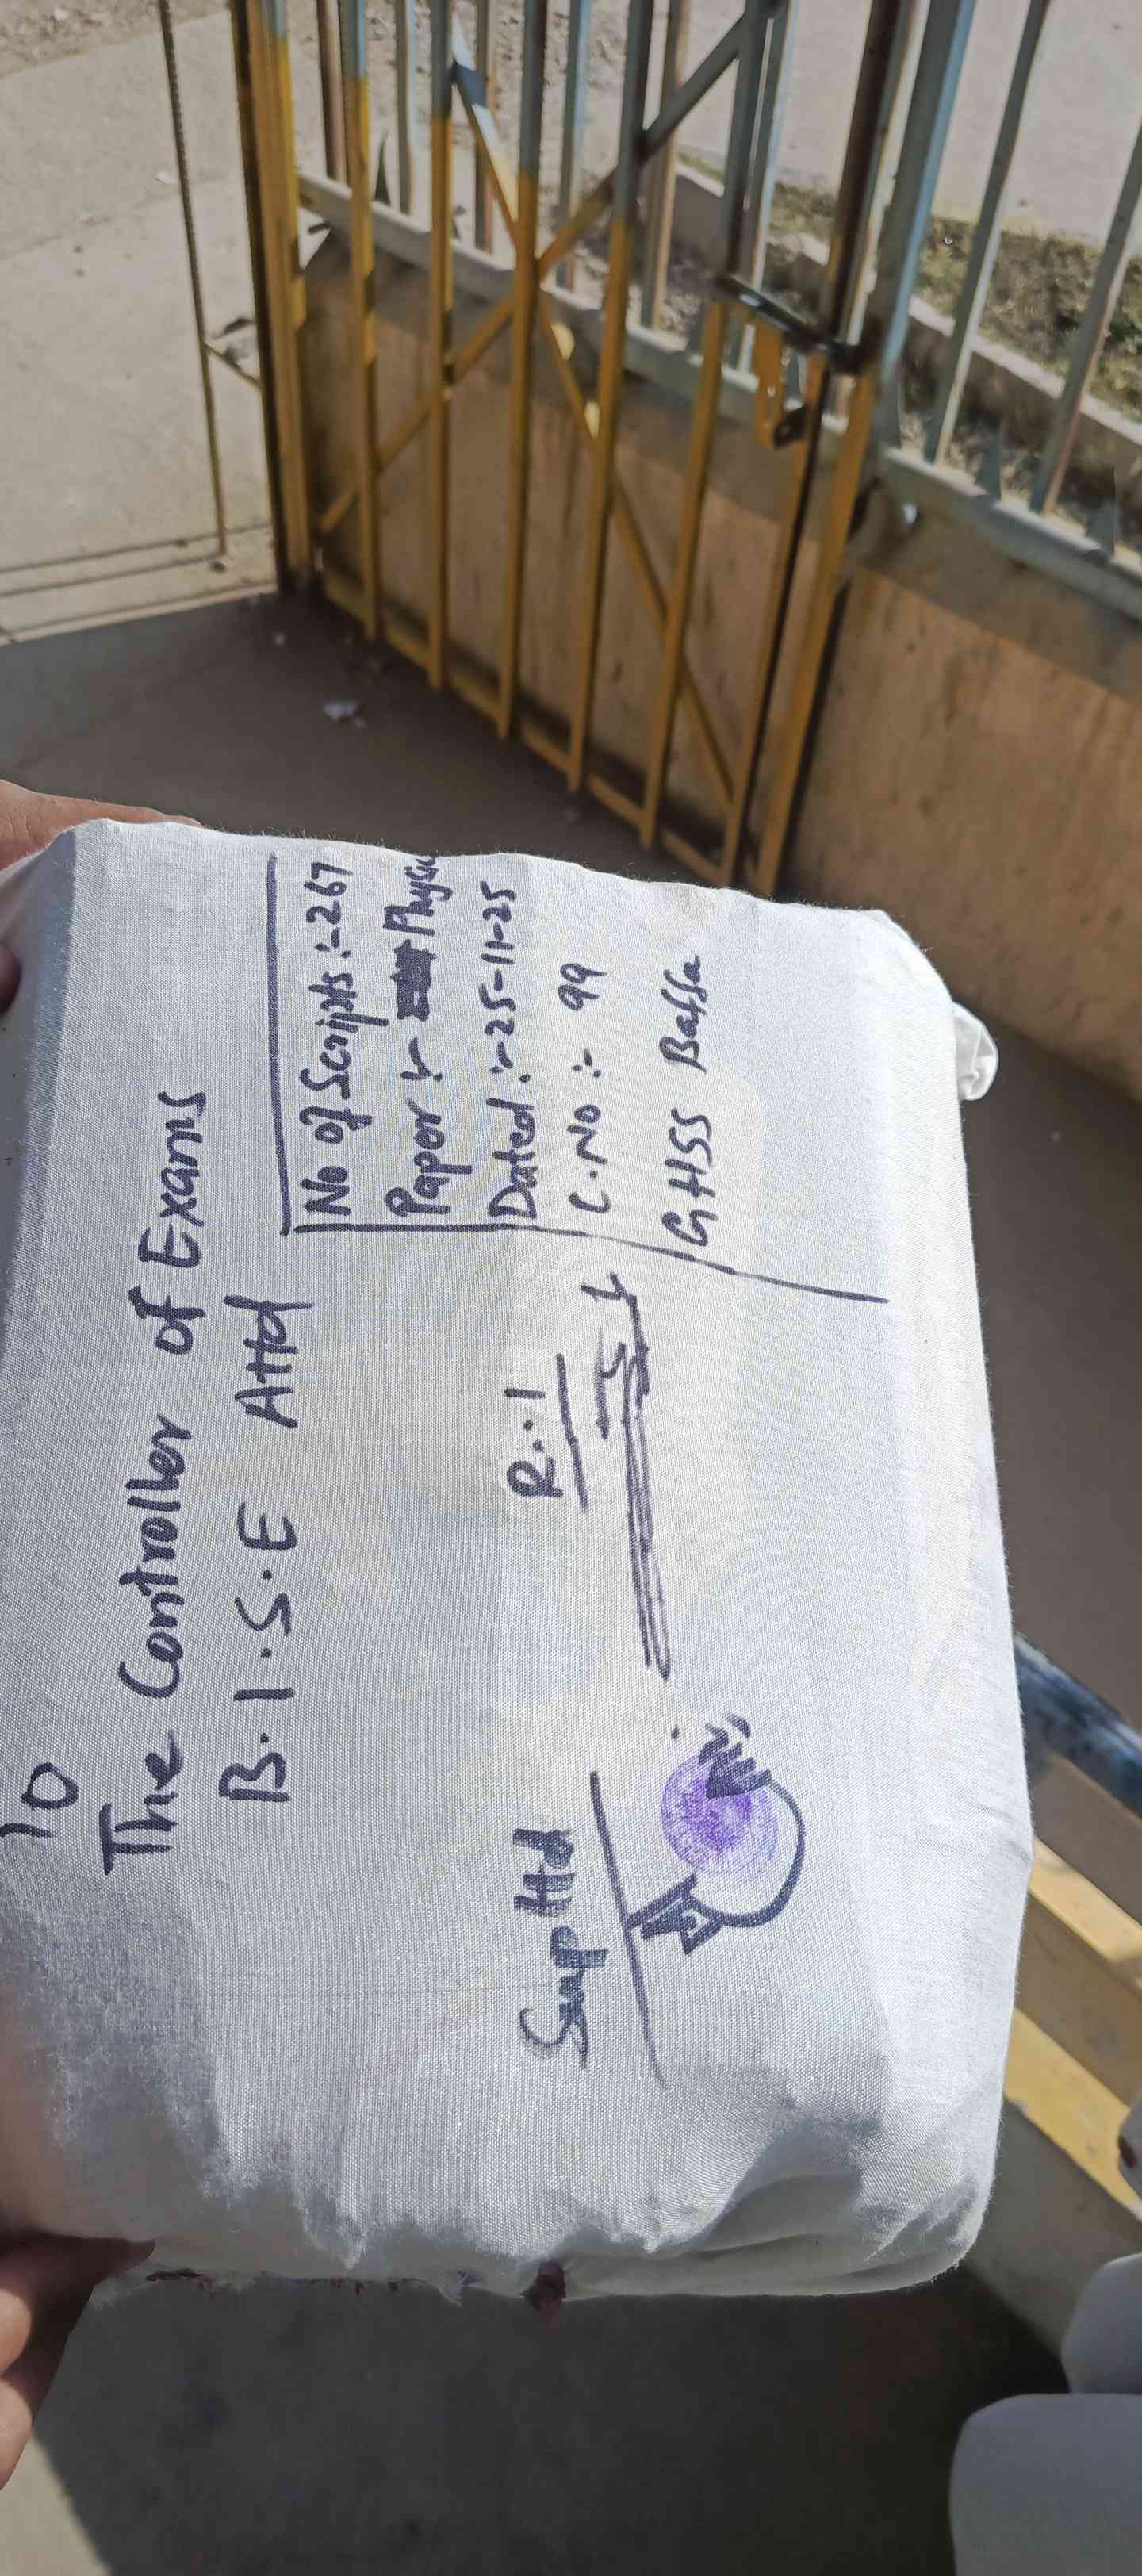 To
The Controller of Exams
B.I.S.E Attd
No of Scripts :- 267
Paper :- Physic
Dated :- 25-11-25
C.No :- 99
GHSS Baffa
R..1
Supttd